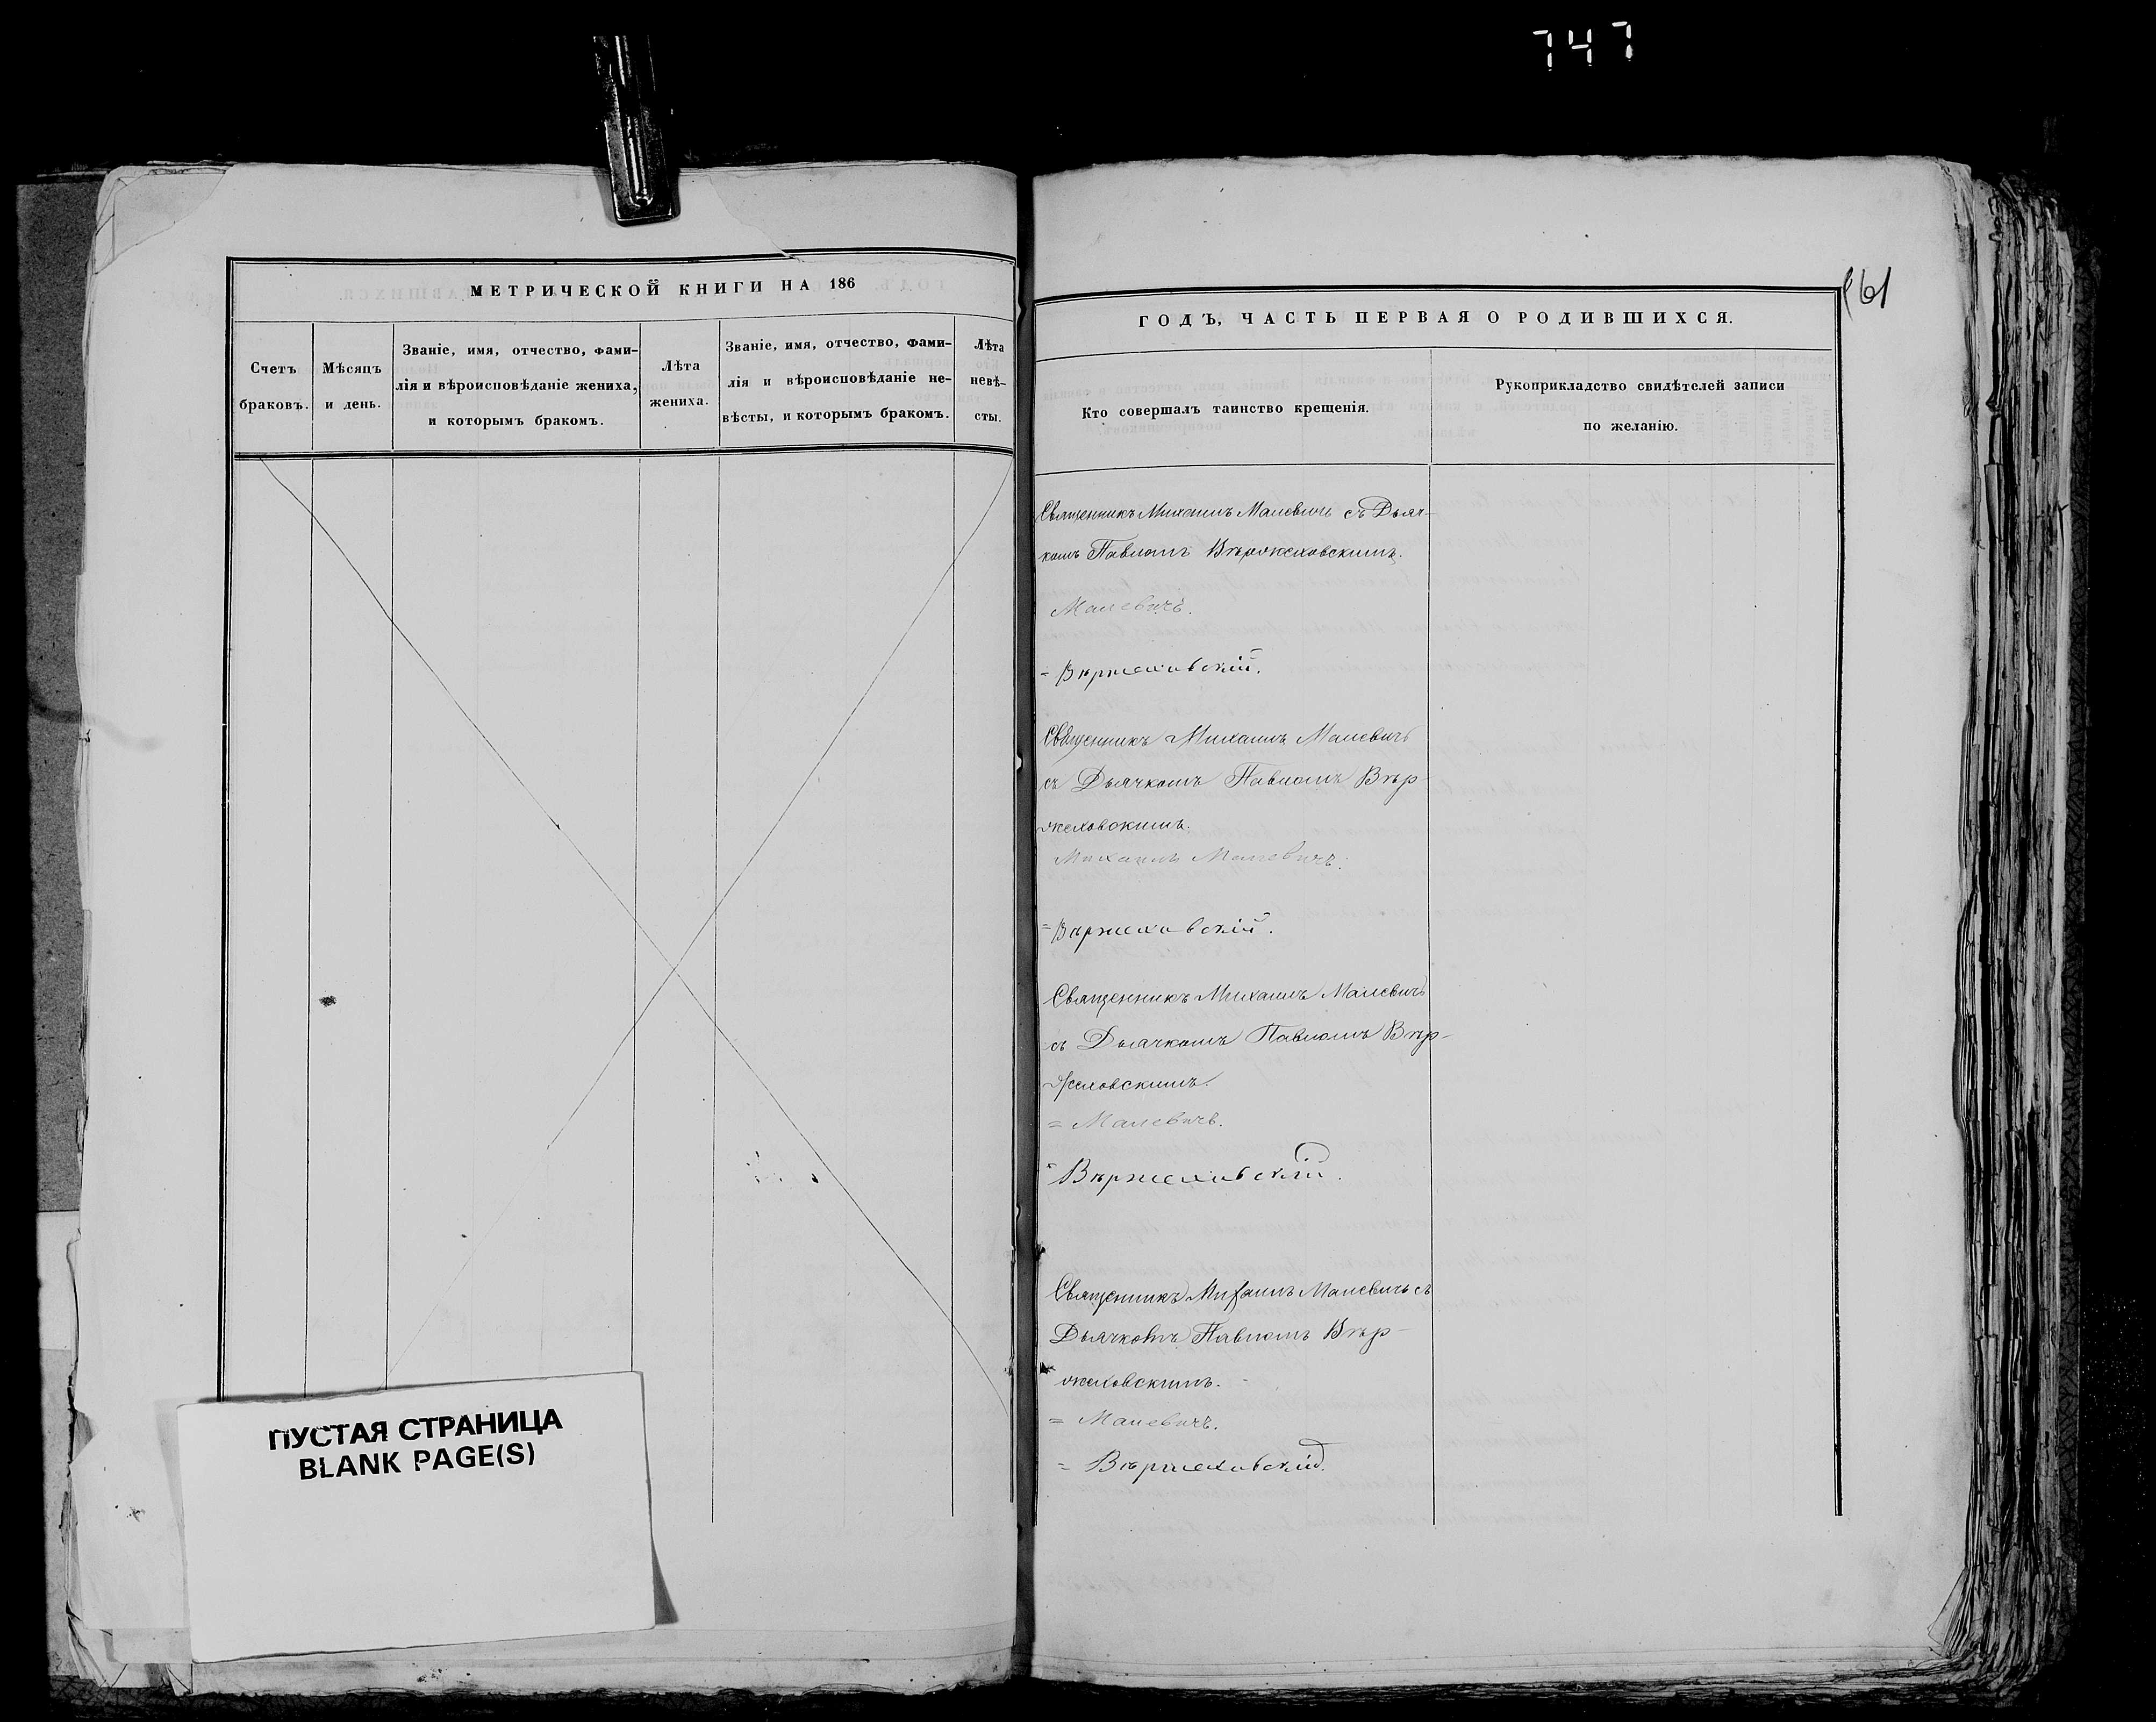 747
МЕТРИЧЕСКОЙ КНИГИ НА 186
Счетъ
браковъ.
Мѣсяцъ
и день.
Званіе, имя, отчество, фами-
лія и вѣроисповѣданіе жениха,
и которымъ бракомъ.
Лѣта
жениха.
Званіе, имя, отчество, фами-
лія и вѣроисповѣданіе не-
вѣсты, и которымъ бракомъ.
Лѣта
невѣ-
сты.
ПУСТАЯ СТРАНИЦА
BLANK PAGE(S)
161
ГОДЪ, ЧАСТЬ ПЕРВАЯ О РОДИВШИХСЯ.
Кто совершалъ таинство крещенія.
Рукоприкладство свидѣтелей записи
по желанію.
Священникъ Михаилъ Малевичъ съ Дьяч-
комъ Павломъ Вѣржеховскимъ.
Малевичъ.
= Вѣржеховскій.
Священникъ Михаилъ Малевичъ
съ Дьячкомъ Павломъ Вѣр-
жеховскимъ.
Михаилъ Малевичъ.
= Вѣржеховскій.
Священникъ Михаилъ Малевичъ
съ Дьячкомъ Павломъ Вѣр-
жеховскимъ.
= Малевичъ.
= Вѣржеховскій.
Священникъ Михаилъ Малевичъ съ
Дьячкомъ Павломъ Вѣр-
жеховскимъ.
= Малевичъ.
= Вѣржеховскій.